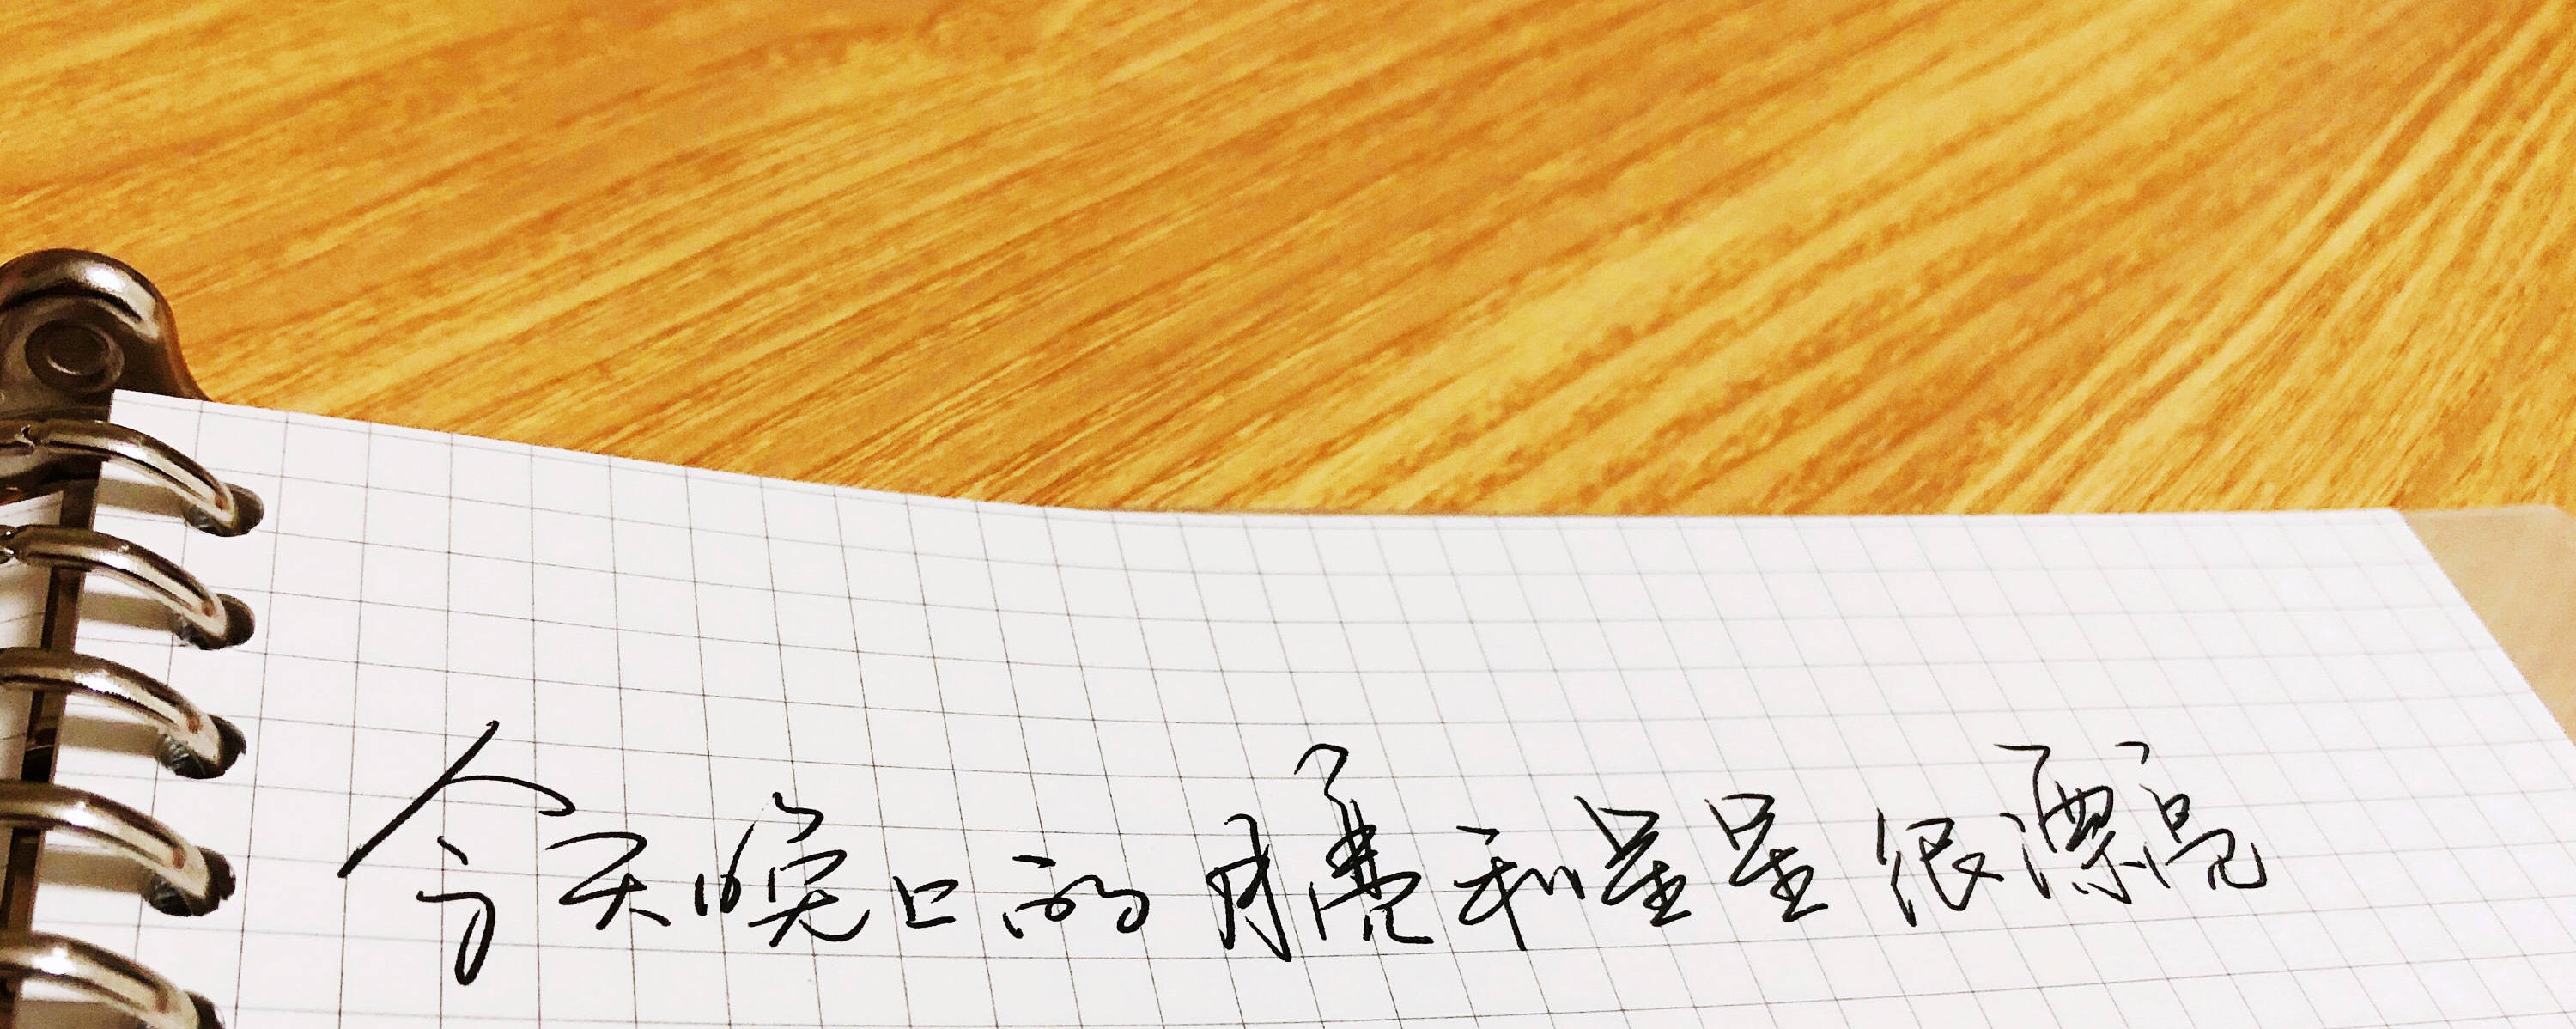 今天晚上的月亮和星星很漂亮